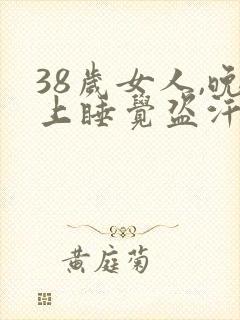 38歲女人,晚
上睡覺盜汗
黃庭菊